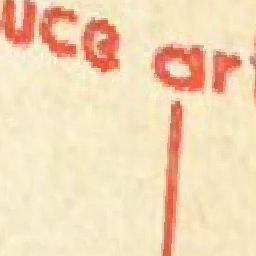 uce ar